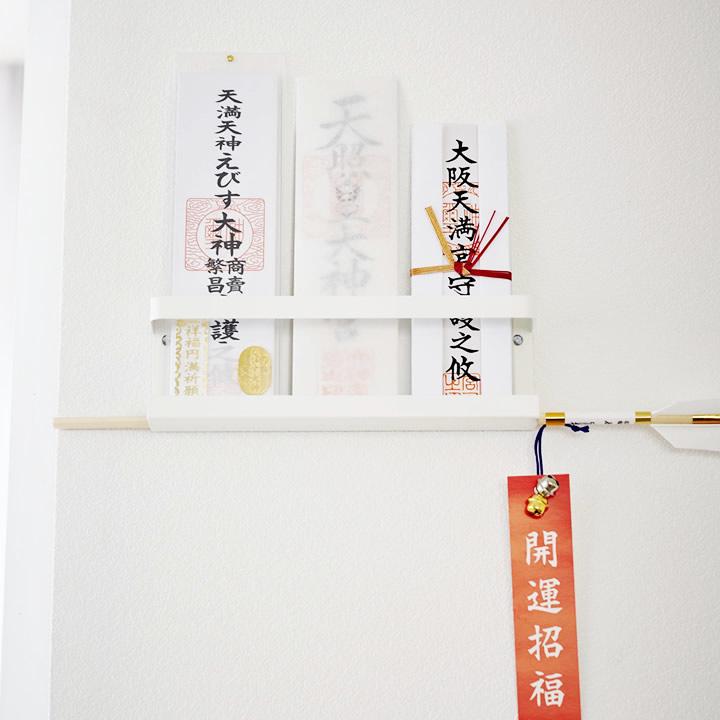 天満天神えびす大神
商賣
繁昌
護
祥福円満祈願
天照皇大神宮
大阪天満宮守護之攸
開運招福